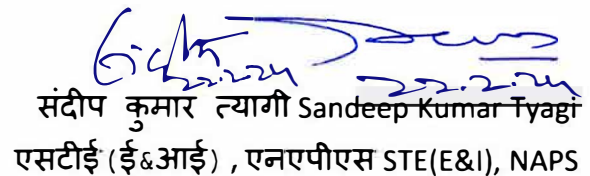 22.2.24
22.2.24
संदीप कुमार त्यागी Sandeep Kumar Tyagi
एसटीई (ई&आई) , एनएपीएस STE(E&I), NAPS